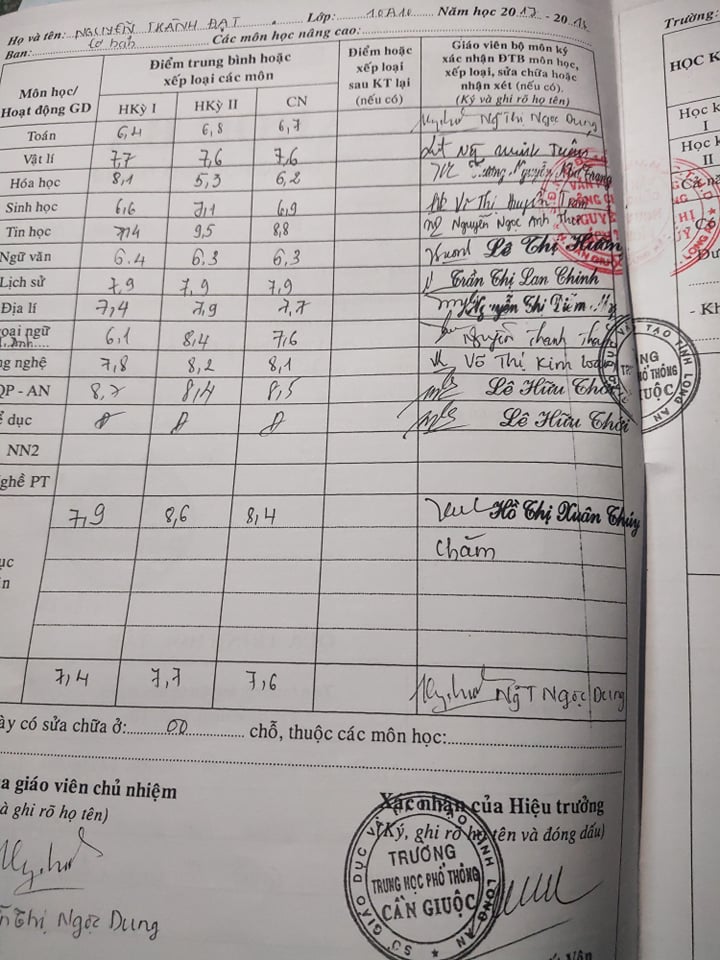 Họ và tên: NGUYỄN THÀNH ĐẠT. Lớp: 10A10 Năm học 2017 - 2018
Ban: cơ bản Các môn học nâng cao:
Môn học/ Hoạt động GD
Điểm trung bình hoặc xếp loại các môn
HKỳ I HKỳ II CN
Điểm hoặc xếp loại sau KT lại (nếu có)
Giáo viên bộ môn ký xác nhận ĐTB môn học, xếp loại, sửa chữa hoặc nhận xét (nếu có).
(Ký và ghi rõ họ tên)
Toán 6,4 6,8 6,7 Ng Thị Ngọc Dung
Vật lí 7,7 7,6 7,6 Ng Minh
Hóa học 8,1 5,3 6,2 Nguyễn
Sinh học 6,6 7,1 6,9 Võ Thị Huyền
Tin học 7,4 9,5 8,8 Nguyễn Ngọc Anh
Ngữ văn 6.4 6.3 6,3 Lê Thị
Lịch sử 7,9 7,9 7,9 Trần Thị Lan Chinh
Địa lí 7,4 7,9 7,7 Nguyễn Thị Diễm
oại ngữ Anh 6,1 8,4 7,6 Nguyễn Thanh
ng nghệ 7,8 8,2 8,1 Võ Thị Kim
QP - AN 8,7 8,4 8,5 Lê Hữu Thới
ể dục Đ Đ Đ Lê Hữu Thới
NN2
ghề PT
7,9 8,6 8,4 Hồ Thị Xuân Thúy
ục
n
7,4 7,7 7,6 NgT Ngọc Dung
ày có sửa chữa ở: 00 chỗ, thuộc các môn học:
a giáo viên chủ nhiệm
à ghi rõ họ tên)
Thị Ngọc Dung
Xác nhận của Hiệu trưởng
(Ký, ghi rõ họ tên và đóng dấu)
SỞ GIÁO DỤC VÀ ĐÀO TẠO TỈNH LONG AN
TRƯỜNG
TRUNG HỌC PHỔ THÔNG
CẦN GIUỘC
Trường:
HỌC K
Học k
I
Học k
II
Cả nă
- Kh